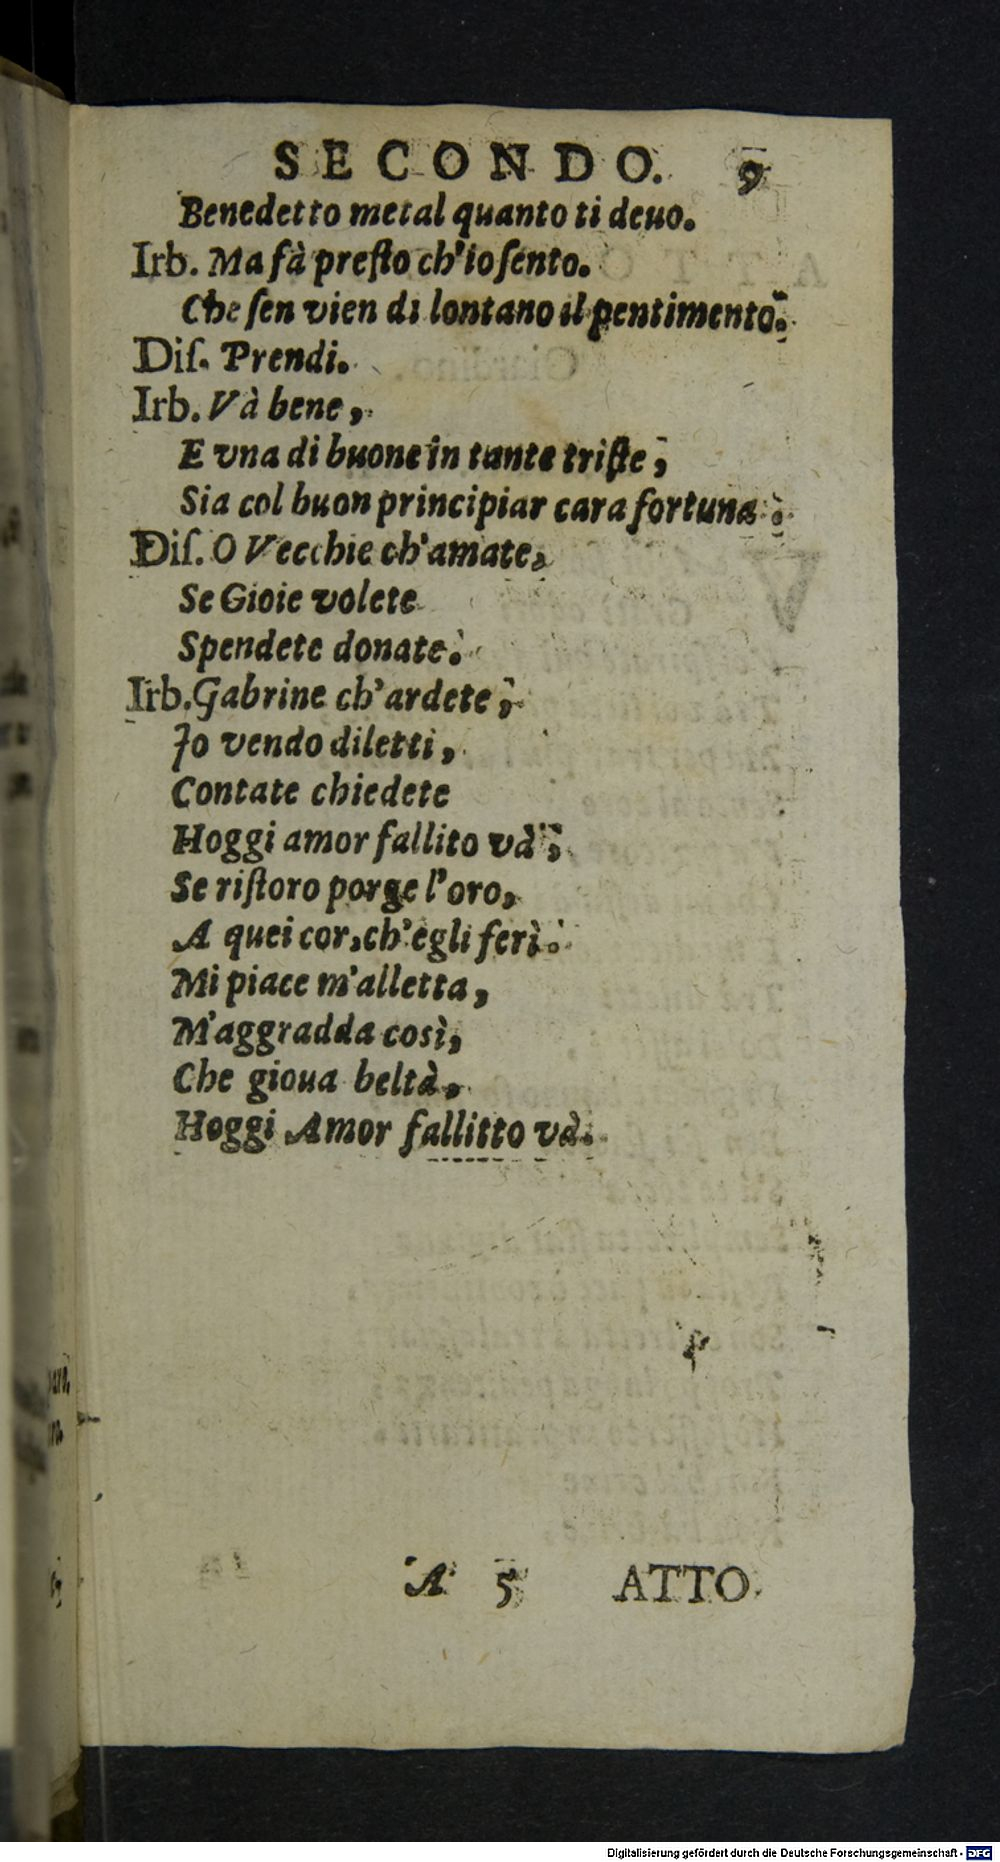 SECONDO. 9
Benedetto metal quanto ti deuo.
Irb. Ma fà preſto ch'io ſento.
Che ſen vien di lontano il pentimento.
Diſ. Prendi.
Irb. Và bene,
E vna di buone in tante triſte;
Sia col buon principiar cara fortuna.
Diſ. O Vecchie ch'amate,
Se Gioie volete
Spendete donate.
Irb. Gabrine ch'ardete,
Io vendo diletti,
Contate chiedete
Hoggi amor fallito và,
Se riſtoro porge l'oro,
A quei cor, ch'egli ferì.
Mi piace m'alletta,
M'aggradda così,
Che gioua beltà,
Hoggi Amor fallitto và.
A 5 ATTO
Digitalisierung gefördert durch die Deutsche Forschungsgemeinschaft - DFG